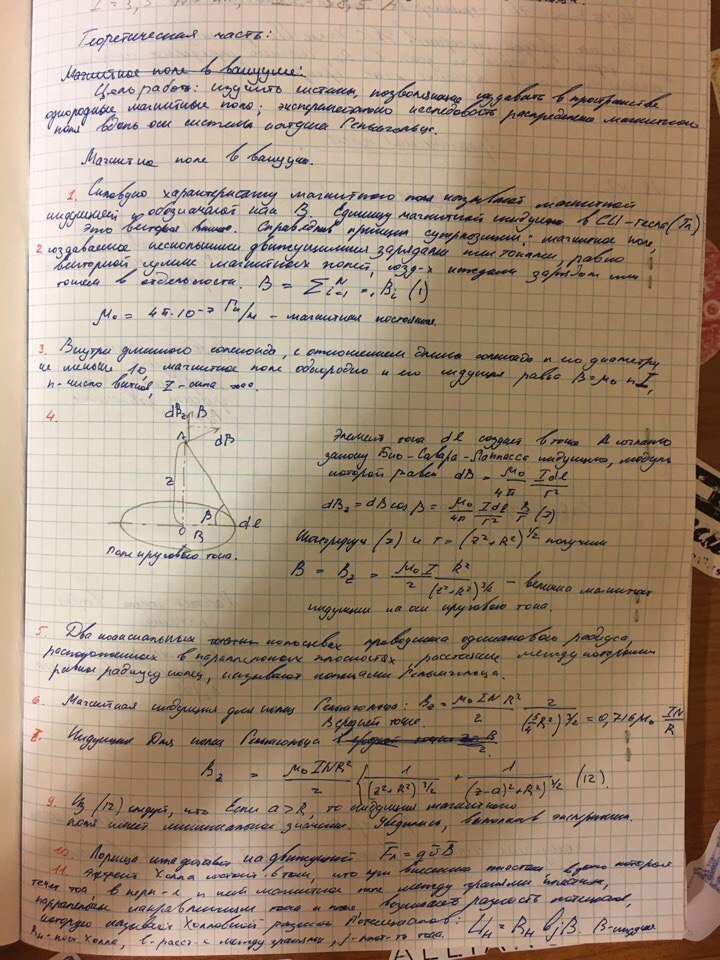 Теоретическая часть:
Магнитное поле в вакууме:
Цель работы: изучить системы, позволяющие создавать в пространстве
однородные магнитные поля; экспериментально исследовать распределение магнитного
поля вдоль оси системы катушек Гельмгольца.
Магнитное поле в вакууме.
1. Силовую характеристику магнитного поля называют магнитной
индукцией и обозначают как B. Единицу магнитной индукции в СИ - тесла (Тл)
Это векторная величина. Справедлив принцип суперпозиции: магнитное поле,
2. создаваемое несколькими движущимися зарядами или токами, равно
векторной сумме магнитных полей, созд-х каждым зарядом или
током в отдельности. B = Σ i=1 N = Bi (1)
μ0 = 4π·10-7 Гн/м - магнитная постоянная.
3. Внутри длинного соленоида, с отношением длины соленоида к его диаметру
не меньше 10, магнитное поле однородно и его индукция равна B = μ0 n I,
n - число витков, I - сила тока.
4.
dBz B
dB
A
z
β
O
R
dl
Поле кругового тока.
Элемент тока dl создает в точке A согласно
закону Био-Савара-Лапласса индукцию, модуль
которой равен dB = μ0/4π Idl/r²
dBz = dB cos β = μ0/4π Idl/r² R/r (7)
(7) и r = (z²+R²)^1/2 получим
B = Bz = μ0 I/2 R²/(z²+R²)^3/2 - величина магнитной
индукции на оси кругового тока.
5. Два коаксиальных кольцевых проводника одинакового радиуса,
расположенных в параллельных плоскостях, расстояние между которыми
равно радиусу колец, называют кольцами Гельмгольца.
6. Магнитная индукция для колец Гельмгольца: Bz = μ0 I N R²/2 2/(5/4 R²)^3/2 = 0,716 μ0 IN/R
В средней точке.
8. Индукция Для колец Гельмгольца
Bz = μ0 I N R²/2 { 1/(z²+R²)^3/2 + 1/((z-a)²+R²)^3/2 (12).
9. Из (12) следует, что Если a > R, то индукция магнитного
поля имеет минимальное значение. Убедились, выполнив эксперимент.
10. Лоренца на движущийся Fл = qv̄B̄
11. Эффект Холла состоит в том, что при внесении пластины, вдоль которой
течет ток, в перп-е к ней магнитное поле между гранями пластины,
параллельными направлениям тока и поля возникает разность потенциалов,
которую называют Холловской разность Потенциалов: Uн = Rн b j B. B - индукция
Rн - пост. Холла, b - расст-е между гранями, j - плот-ть тока.